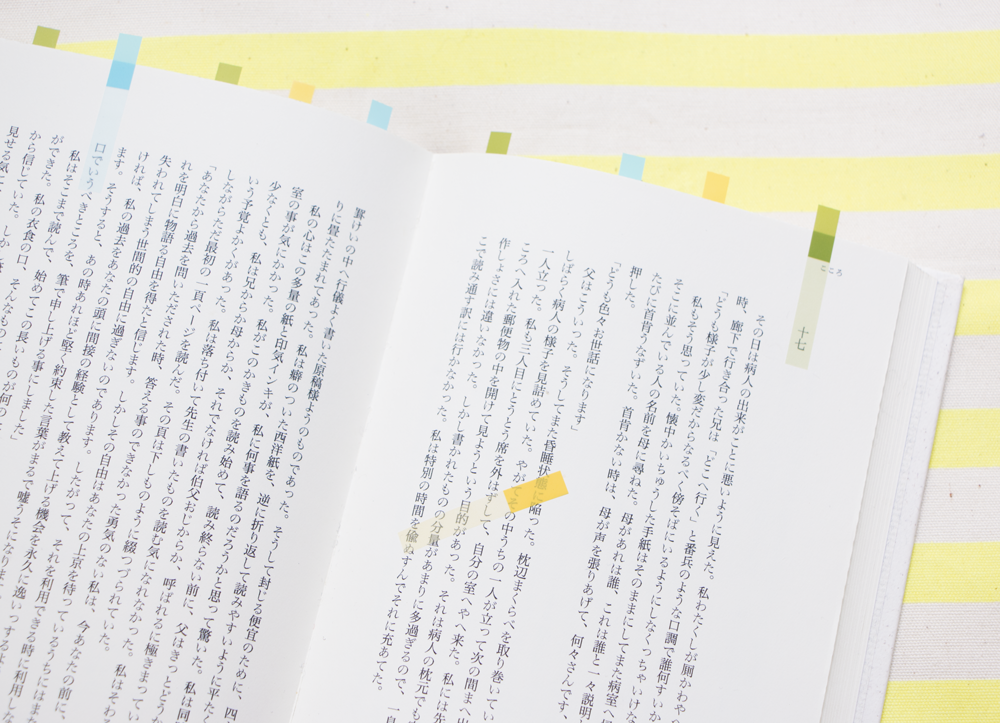 こころ
十七
その日は病人の出来がことに悪いように見えた。私わたくしが厠かわやへ
時、廊下で行き合った兄は「どこへ行く」と番兵のような口調で誰何すいか
「どうも様子が少し変だからなるべく傍そばにいるようにしなくっちゃいけな
私もそう思っていた。懐中かいちゅうした手紙はそのままにしてまた病室へ
そこに並んでいる人の名前を母に尋ねた。母があれは誰、これは誰と一々説明
たびに首肯うなずいた。首肯かない時は、母が声を張りあげて、何々さんです、
押した。
「どうも色々お世話になります」
父はこういった。そうしてまた昏睡状態に陥った。枕辺まくらべを取り巻いてい
しばらく病人の様子を見詰めていた。やがてその中うちの一人が立って次の間へ出
一人立った。私も三人目にとうとう席を外はずして、自分の室へやへ来た。私には先
ころへ入れた郵便物の中を開けて見ようという目的があった。それは病人の枕元でも
作しょさには違いなかった。しかし書かれたものの分量があまりに多過ぎるので、一息
こで読み通す訳には行かなかった。私は特別の時間を偸ぬすんでそれに充あてた。
罫けいの中へ行儀よく書いた原稿様ようのものであった。そうして封じる便宜のために、四
りに畳たたまれてあった。私は癖のついた西洋紙を、逆に折り返して読みやすいように平たく
私の心はこの多量の紙と印気インキが、私に何事を語るのだろうかと思って驚いた。私は同
室の事が気にかかった。私がこのかきものを読み始めて、読み終らない前に、父はきっとどうか
少なくとも、私は兄からか母からか、それでなければ伯父おじからか、呼ばれるに極きまってい
いう予覚よかくがあった。私は落ち付いて先生の書いたものを読む気になれなかった。私はそわ
しながらただ最初の一頁ページを読んだ。その頁は下しものように綴つづられていた。
「あなたから過去を問いただされた時、答える事のできなかった勇気のない私は、今あなたの前に、
れを明白に物語る自由を得たと信じます。しかしその自由はあなたの上京を待っているうちにはまた
失われてしまう世間的の自由に過ぎないのであります。したがって、それを利用できる時に利用し
ければ、私の過去をあなたの頭に間接の経験として教えて上げる機会を永久に逸いっするよ
ます。そうすると、あの時あれほど堅く約束した言葉がまるで嘘うそになりま
口でいうべきところを、筆で申し上げる事にしました」
私はそこまで読んで、始めてこの長いものが何の
ができた。私の衣食の口、そんなもの
から信じていた。しか
見せる気に